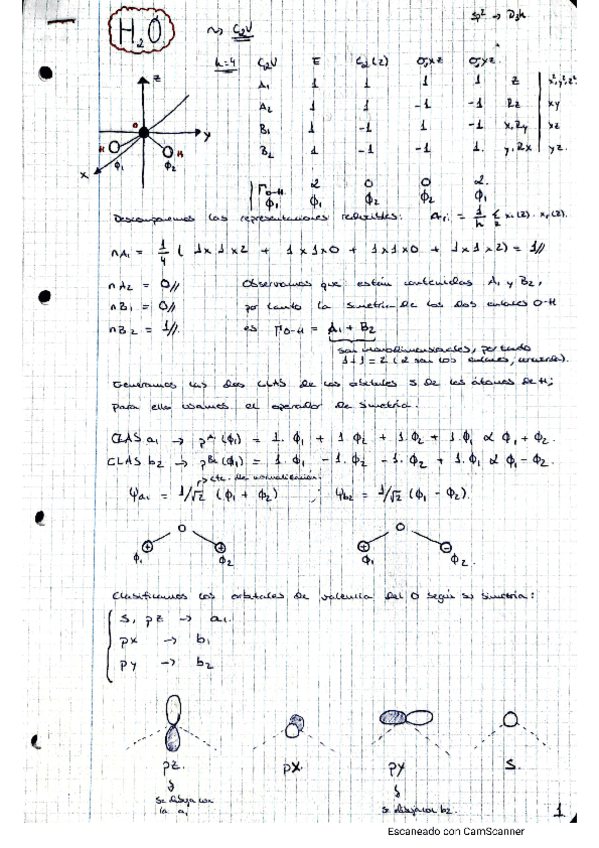 sp² → D3h
H₂O ~> C₂V
h=4 C₂V E C₂(z) σᵥxz σᵥyz
A₁ 1 1 1 1 z x²,y²,z²
A₂ 1 1 -1 -1 Rz xy
B₁ 1 -1 1 -1 x,Ry xz
B₂ 1 -1 -1 1 y,Rx yz.
z
y
x
O
H
H
ϕ₁
ϕ₂
Γo-H. 2 0 0 2.
ϕ₁ ϕ₁ ϕ₂ ϕ₂ ϕ₁
Descomponemos las representaciones reducibles:
nA₁ = 1/4 ( 1x1x2 + 1x1x0 + 1x1x0 + 1x1x2) = 1//
nA₂ = 0// Observamos que están contenidas A₁ y B₂,
nB₁ = 0// por tanto la simetría de los dos enlaces O-H
nB₂ = 1// es Γo-H = A₁ + B₂
son monodimensionales, por tanto
1+1 = 2 (2 son los enlaces, ).
Generamos las dos CLAS de los orbitales s de los átomos de H;
para ello usamos el operador de simetría.
CLAS a₁ → pᴬ¹(ϕ₁) = 1.ϕ₁ + 1.ϕ₂ + 1.ϕ₂ + 1.ϕ₁ ∝ ϕ₁ + ϕ₂.
CLAS b₂ → pᴮ²(ϕ₁) = 1.ϕ₁ - 1.ϕ₂ - 1.ϕ₂ + 1.ϕ₁ ∝ ϕ₁ - ϕ₂.
→ cte. de normalización.
Ψa₁ = 1/√2 (ϕ₁ + ϕ₂) ; Ψb₂ = 1/√2 (ϕ₁ - ϕ₂).
O O
+ + + -
ϕ₁ ϕ₂ ϕ₁ ϕ₂.
Clasificamos los orbitales de valencia del O según su simetría:
s, pz → a₁.
px → b₁
py → b₂
pz. px. py s.
se dibuja con
la a₁
se dibuja con b₂.
1
Escaneado con CamScanner